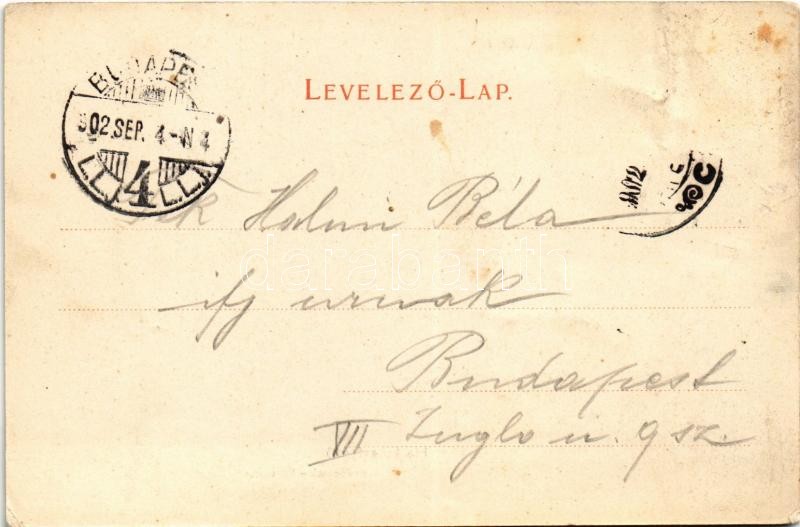 LEVELEZŐ-LAP.
BUDAPE
902.SEP. 4-N 4
4
Tek Halm Béla
ifj urnak
Budapest
VII Zuglo u. 9 sz.
darabanth